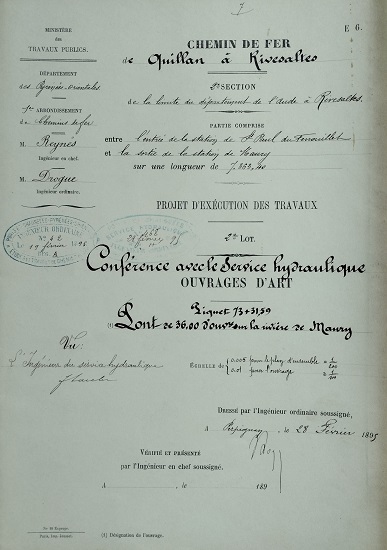 7
E 6.
MINISTÈRE
des
TRAVAUX PUBLICS.
DÉPARTEMENT
des Pyrénées-orientales
ARRONDISSEMENT
de Chemins de fer
M Reynès
Ingénieur en chef.
M Drogue
Ingénieur ordinaire.
CHEMIN DE FER
de Quillan à Rivesaltes
2e SECTION
de la limite du département de l'Aude à Rivesaltes.
PARTIE COMPRISE
entre l'entrée de la station de St Paul du Fenouillet
et la sortie de la station de Maury
sur une longueur de 7.353,40
PROJET D'EXÉCUTION DES TRAVAUX
2e LOT.
INGÉNIEUR ORDINAIRE
No 42
19 février 1895
Conférence avec le Service hydraulique
OUVRAGES D'ART
Piquet 73+31.59
(1) Pont de 36.00 d'ouvre sur la rivière de Maury
Vu:
L'Ingénieur du service hydraulique
ÉCHELLE de 0.005 pour le plan d'ensemble = 1/200
0.01 pour l'ouvrage = 1/100
DRESSÉ par l'Ingénieur ordinaire soussigné,
A Perpignan, le 28 Février 1895
VÉRIFIÉ ET PRÉSENTÉ
par l'Ingénieur en chef soussigné.
A , le 189
(1) Désignation de l'ouvrage.